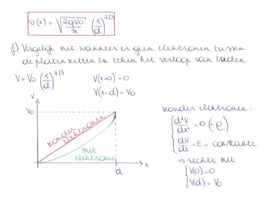 v(x) = √(2qV0/m) (x/d)^2/3
f) Vergelijk met wanneer er geen elektronen tussen
de platen zitten en teken het verloop van beiden.
V = V0 (x/d)^4/3
V(x=0) = 0
V(x=d) = V0
V
V0
zonder elektronen
met
elektronen
d
x
zonder elektronen:
d²V/dx² = 0 (=ρ)
dV/dx = -E = constante
→ rechte met
V(0) = 0
V(d) = V0